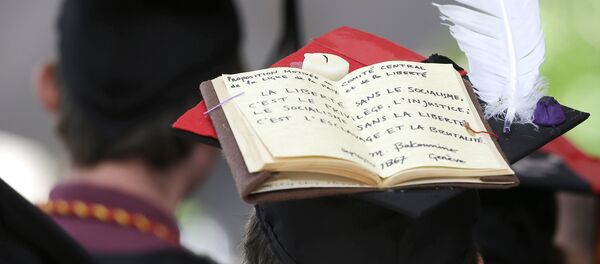 PROPOSITION MOTIVÉE AU COMITÉ CENTRAL
de LA LIGUE de LA PAIX et de LA LIBERTÉ
LA LIBERTÉ SANS LE SOCIALISME,
C'EST LE PRIVILÈGE, L'INJUSTICE;
LE SOCIALISME SANS LA LIBERTÉ
C'EST L'ESCLAVAGE ET LA BRUTALITÉ
M. Bakounine
1867 Genève